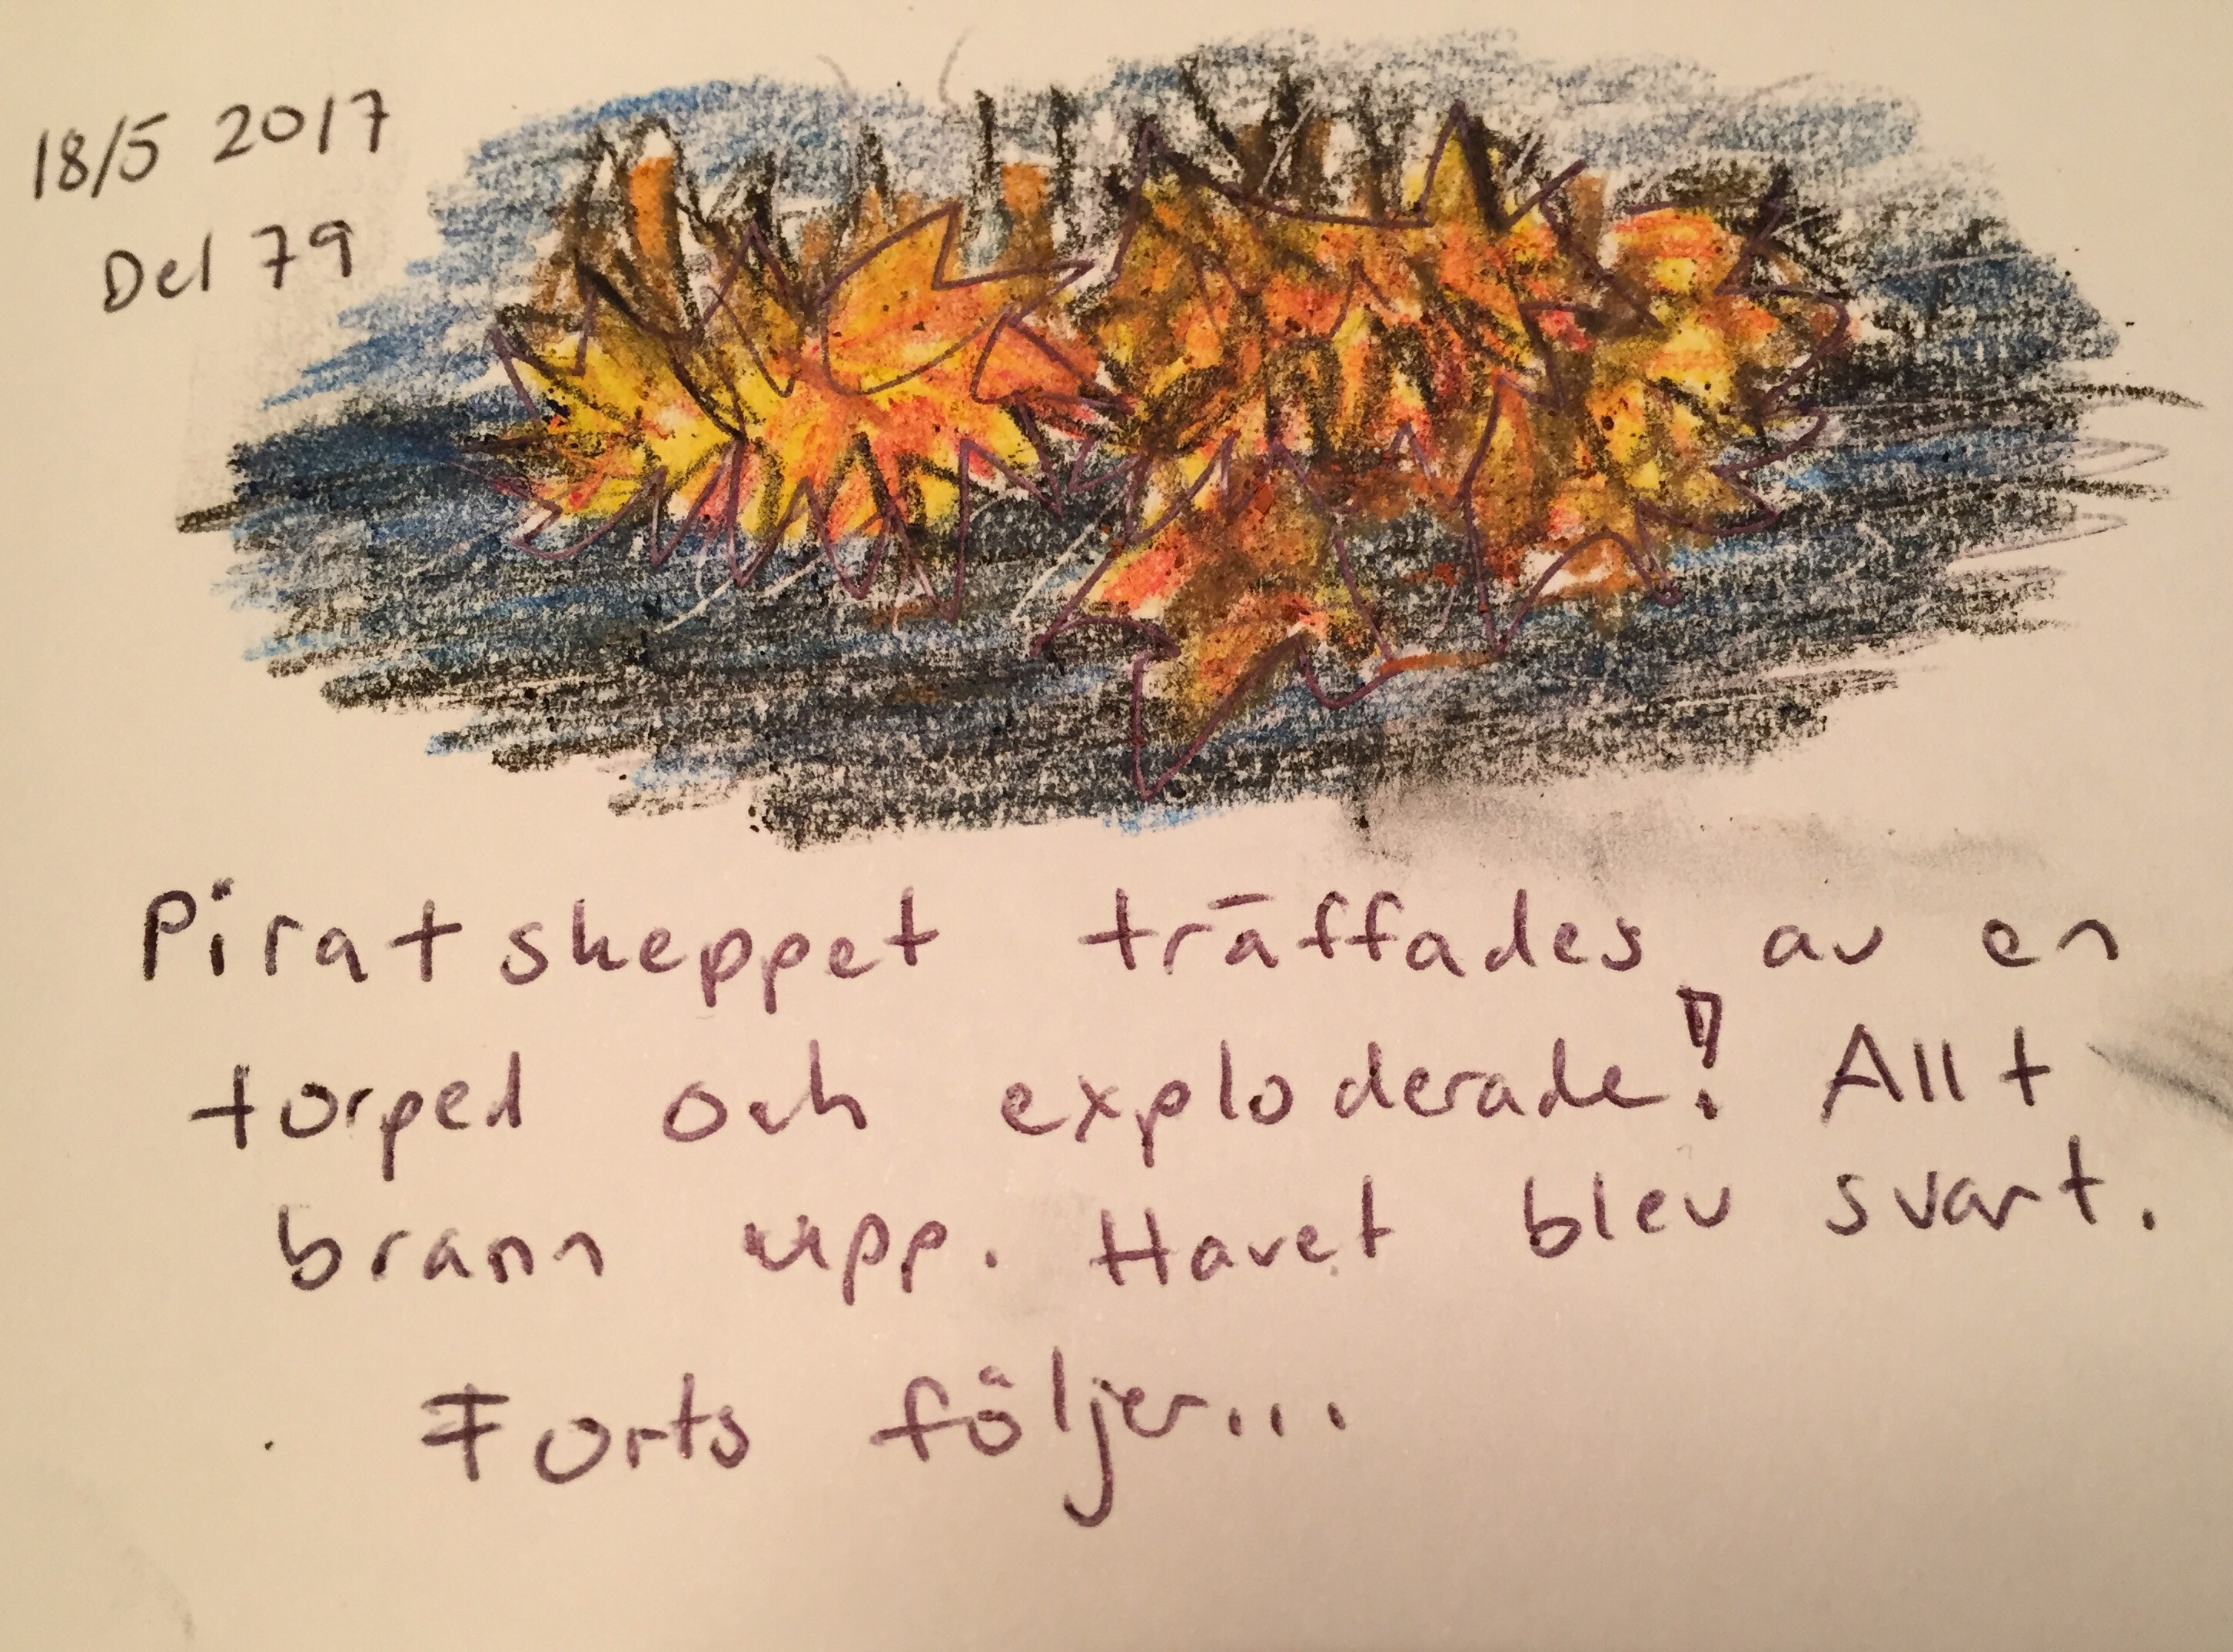 18/5 2017
Del 79
Piratskeppet träffades av en
torped och exploderade! Allt
brann upp. Havet blev svart.
Forts följer...